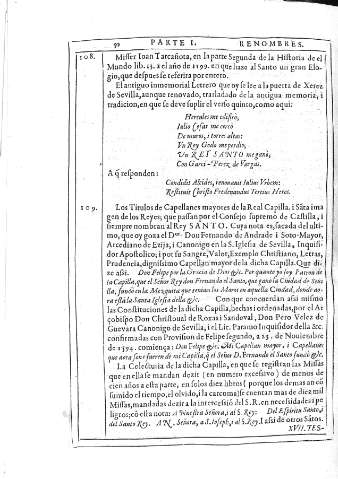 92 PARTE I. RENOMBRES.
108. Misser Ioan Tarcañota, en la parte Segunda de la Historia de el
Mundo lib. 15. a el año de 1199. en que haze al Santo un gran Elo-
gio, que despues se referira por entero.
El antiguo inmemorial Letrero que oy se lee a la puerta de Xerez
de Sevilla, aunque renovado, trasladado de la antigua memoria, i
tradicion, en que se deve suplir el verso quinto, como aqui:
Hercules me edificò,
Iulio Cesar me cercò
De muros, i torres altas:
Un Rey Godo me perdiò,
Un REY SANTO me ganò,
Con Garci-Perez de Vargas.
A q̃ responden:
Condidit Alcides, renovavit Iulius Vrbem:
Restituit Christo Fredenandus Tertius Heros.
109. Los Titulos de Capellanes mayores de la Real Capilla, i Sãta ima
gen de los Reyes, que passan por el Consejo supremo de Castilla, i
siempre nombran al Rey SANTO. Cuya nota es, sacada del ulti-
mo, que oy goza el D.or Don Fernando de Andrade i Soto-Mayor,
Arcediano de Ezija, i Canonigo en la S. Iglesia de Sevilla, Inquisi-
dor Apostolico, i por su Sangre, Valor, Exemplo Christiano, Letras,
Prudencia, dignissimo Capellan mayor de la dicha Capilla. Que di-
ze assi. Don Felipe por la Gracia de Dios &c. Por quanto yo soy Patron de
la Capilla, que el Señor Rey don Fernando el Santo, que ganò la Ciudad de Sevi
lla, fundò en la Mezquita que tenian los Moros en aquella Ciudad, donde aora
està la Santa Iglesia della &c. Con que concuerdan assi mismo
las Constituciones de la dicha Capilla, hechas i ordenadas, por el Ar-
cobispo Don Christoual de Roxas i Sandoval, Don Pero Velez de
Guevara Canonigo de Sevilla, i el Lic. Paramo Inquisidor della &c.
confirmadas con Provision de Felipe Segundo, a 23. de Noviembre
de 1594. comiença: Don Felipe &c. Capellan mayor, i Capellanes
que aora son i fueren de mi Capilla, q̃ el Señor D. Fernando el Santo fundò &c.
La Colecturia de la dicha Capilla, en que se registran las Missas
que en ella se mandan dezir (en numero excessivo) de menos de
cien años a esta parte, en solos diez libros (porque los demas an cõ
sumido el tiempo, el olvido, i la carcoma) se cuentan mas de diez mil
Missas, mandadas dezir a la intercession del S. R. en necessidades i pe
ligros; cõ esta nota: A Nuestra Señora, i al S. Rey: Del Espiritu Santo, i
del Santo Rey. A N. Señora, a S. Ioseph, i al S. Rey. I assi de otros Sãtos.
XVII. TES-